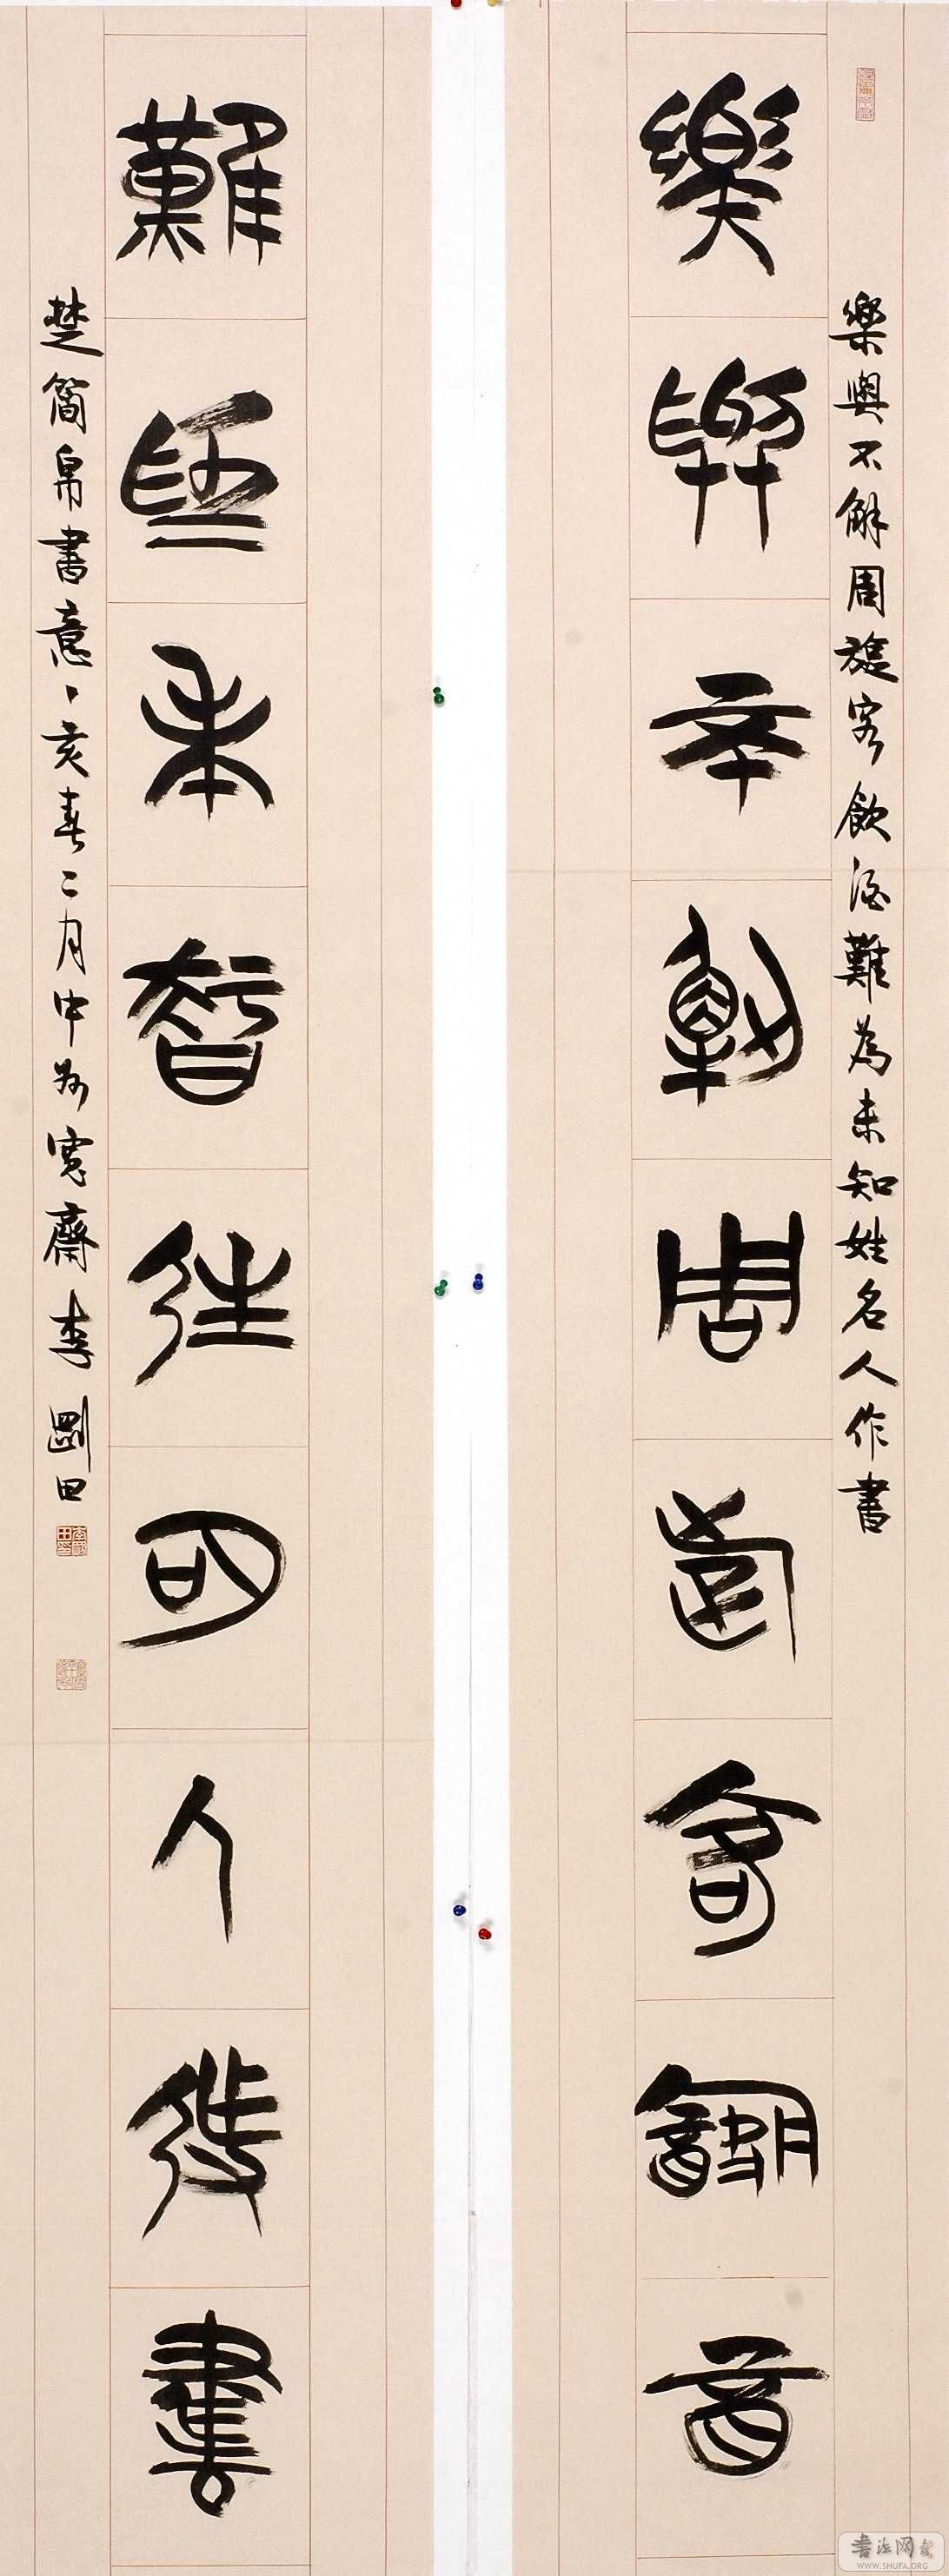 樂與不解周旋客飲酒難為未知姓名人作書
樂與不解周旋客飲酒
難為未知姓名人作書
楚簡帛書意丶亥春二月中於寬齋李剛田
書法网
WWW.SHUFA.ORG